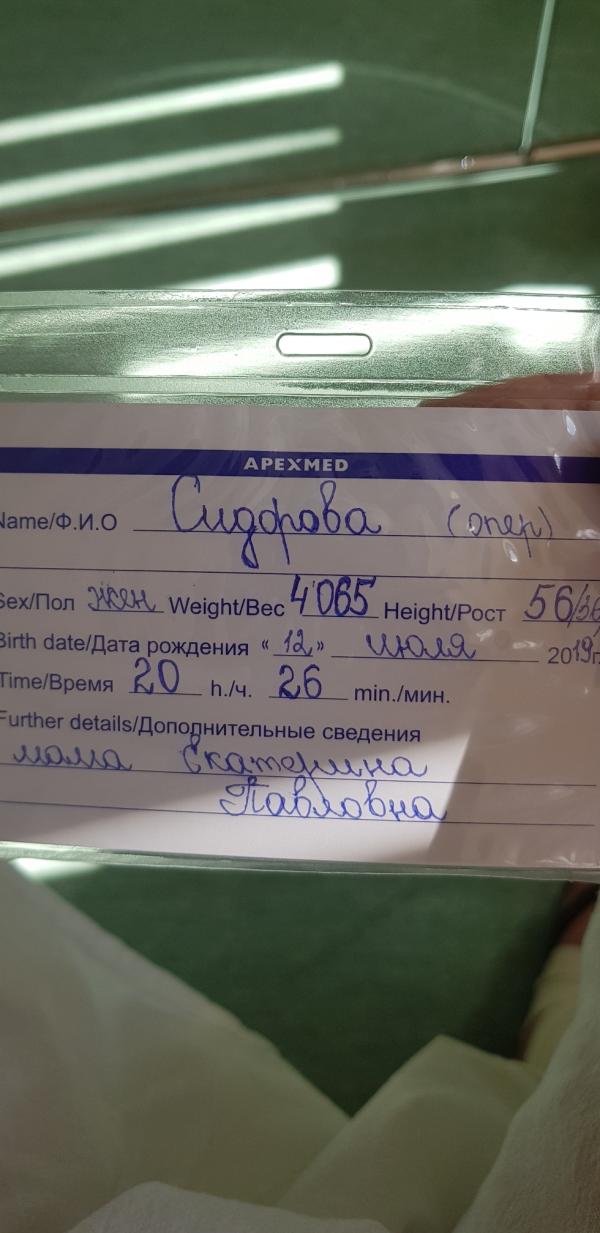 APEXMED
Name/Ф.И.О Сидорова (опер)
Sex/Пол жен Weight/Вес 4'065 Height/Рост 56/36
Birth date/Дата рождения «12» июля 2019г.
Time/Время 20 h./ч. 26 min./мин.
Further details/Дополнительные сведения
мама Екатерина
Павловна